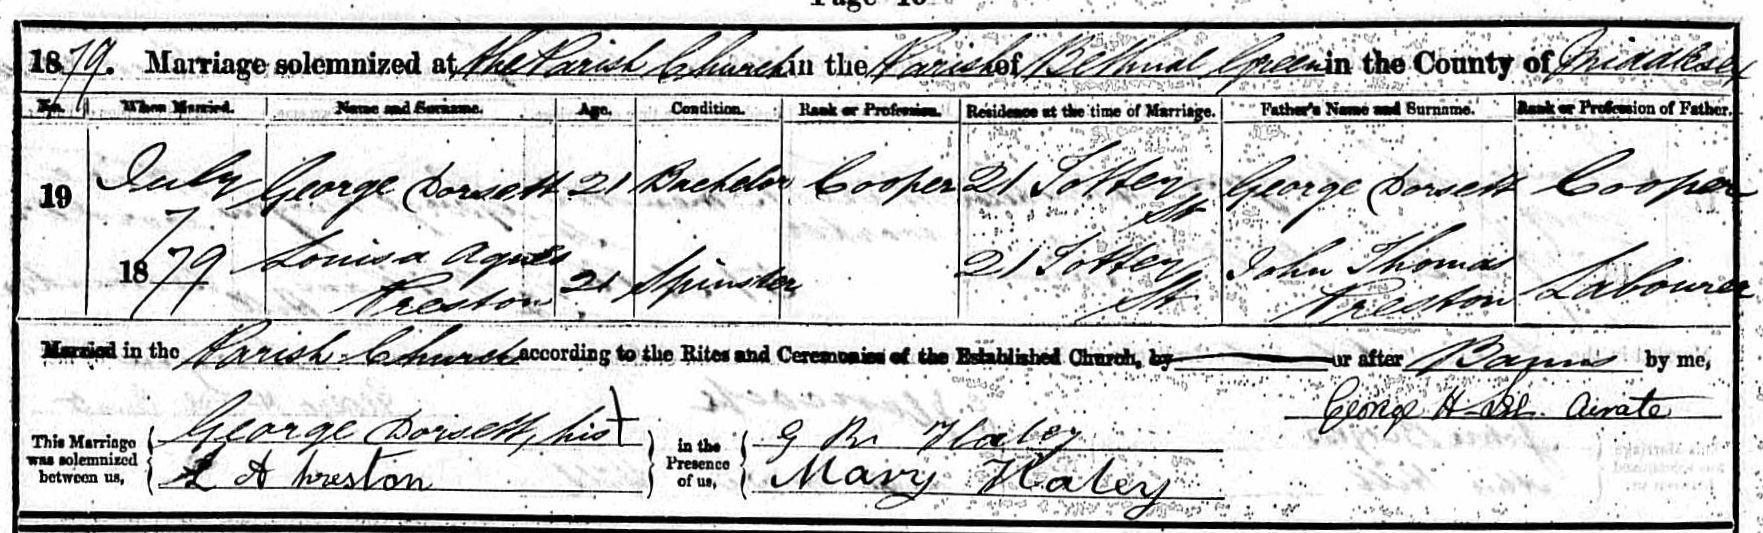 Page
1879. Marriage solemnized at the Parish Church in the Parish of Bethnal Green in the County of Middlesex
No. When Married. Name and Surname. Age. Condition. Rank or Profession. Residence at the time of Marriage. Father's Name and Surname. Rank or Profession of Father.
19 July 7 1879 George Dorsett 21 Bachelor Cooper 21 St George Dorsett Cooper
Louisa Agnes Preston 21 Spinster 21 St John Thomas Preston Labourer
Married in the Parish Church according to the Rites and Ceremonies of the Established Church, by or after Banns by me,
George H Curate
This Marriage was solemnized between us, George Dorsett, his +
L A Preston
in the Presence of us, G R Haley
Mary Haley